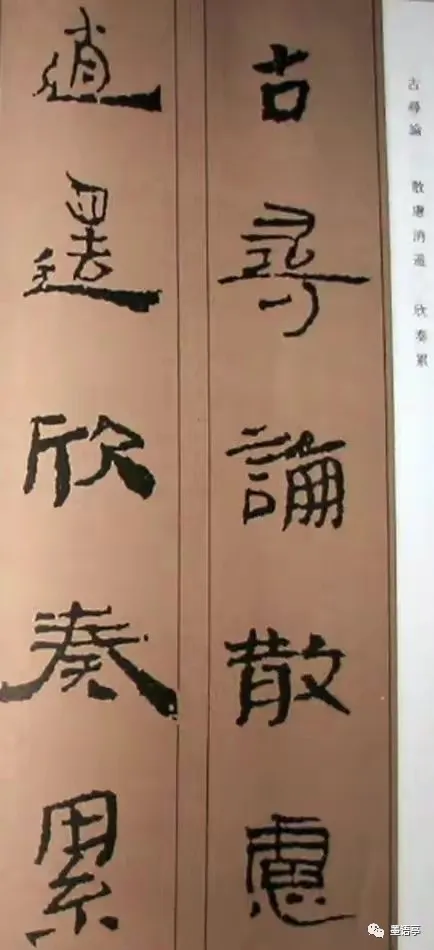 古尋論 散慮消遥 欣奏累
古尋論散慮
逍遥欣奏累
墨语亭